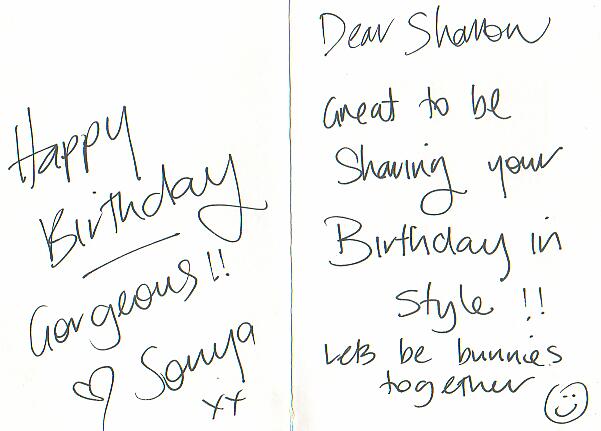 Happy
Birthday
Gorgeous!!
♡ Sonya
xx
Dear Sharon
Great to be
Sharing your
Birthday in
Style !!
Lets be bunnies
together ☺